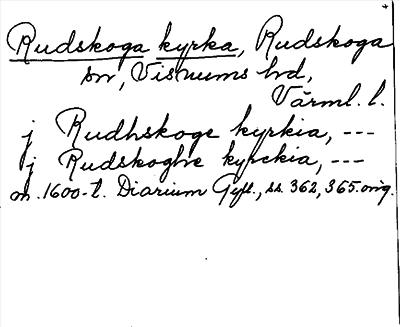 Rudskoga kyrka, Rudskoga
sn, Visnums hd,
Värml. l.
j Rudhskoge kyrkia, ---
j Rudskoghe kyrckia, ---
m. 1600-t. Diarium Gyll., ss. 362, 365. orig.